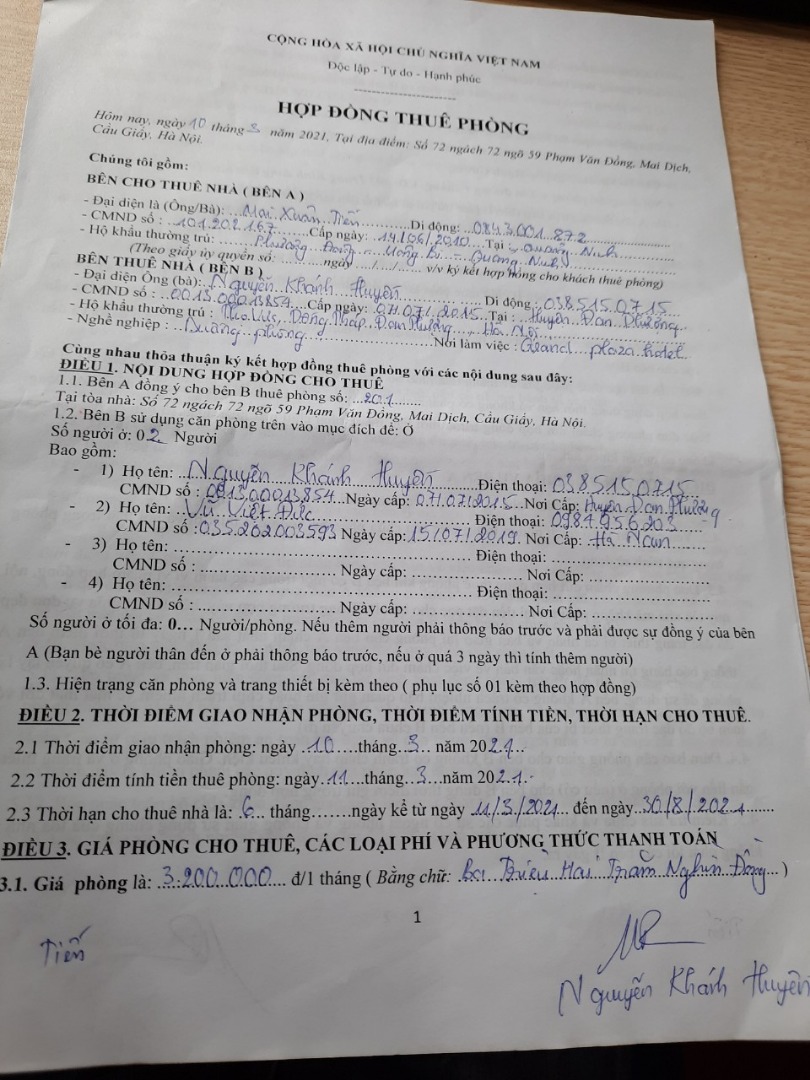 CỘNG HÒA XÃ HỘI CHỦ NGHĨA VIỆT NAM
Độc lập - Tự do - Hạnh phúc
HỢP ĐỒNG THUÊ PHÒNG
Hôm nay, ngày 10 tháng 3 năm 2021, Tại địa điểm: Số 72 ngách 72 ngõ 59 Phạm Văn Đồng, Mai Dịch,
Cầu Giấy, Hà Nội.
Chúng tôi gồm:
BÊN CHO THUÊ NHÀ ( BÊN A )
- Đại diện là (Ông/Bà): ...Mai Xuân Tiến...........Di động: ..0843.001.872
- CMND số : ..101.202.167......Cấp ngày: .14/06/2010....Tại : Quảng Ninh
- Hộ khẩu thường trú: ......Phương Đông - Uông Bí - Quảng Ninh
(Theo giấy ủy quyền số: ............ngày ..../..../.... v/v ký kết hợp đồng cho khách thuê phòng)
BÊN THUÊ NHÀ ( BÊN B )
- Đại diện Ông (bà): Nguyễn Khánh Huyền ........ Di động : 038515.0715
- CMND số : ..0013.00013854...Cấp ngày: 07/07/2015..Tại : Huyện Đan Phượng
- Hộ khẩu thường trú : Đồng Tháp, Đan Phượng, Hà Nội
- Nghề nghiệp : ..Buồng phòng ..........Nơi làm việc : Grand plaza hotel
Cùng nhau thỏa thuận ký kết hợp đồng thuê phòng với các nội dung sau đây:
ĐIỀU 1. NỘI DUNG HỢP ĐỒNG CHO THUÊ
1.1. Bên A đồng ý cho bên B thuê phòng số: ...201........
Tại tòa nhà: Số 72 ngách 72 ngõ 59 Phạm Văn Đồng, Mai Dịch, Cầu Giấy, Hà Nội.
1.2. Bên B sử dụng căn phòng trên vào mục đích để: Ở
Số người ở: 02 Người
Bao gồm:
- 1) Họ tên: ..Nguyễn Khánh Huyền.........Điện thoại: 038515.0715
CMND số : 001300013854...Ngày cấp: 07/07/2015..Nơi Cấp: Huyện Đan Phượng
- 2) Họ tên: ..Vũ Việt Đức................ Điện thoại: 0984956203
CMND số :035202003593 Ngày cấp:15/07/2019. Nơi Cấp: Hà Nam
- 3) Họ tên: ............................................ Điện thoại: ........................
CMND số : ...................... Ngày cấp: .................... Nơi Cấp: ....................
- 4) Họ tên: ............................................ Điện thoại: ........................
CMND số : ...................... Ngày cấp: .................... Nơi Cấp: ....................
Số người ở tối đa: 0... Người/phòng. Nếu thêm người phải thông báo trước và phải được sự đồng ý của bên
A (Bạn bè người thân đến ở phải thông báo trước, nếu ở quá 3 ngày thì tính thêm người)
1.3. Hiện trạng căn phòng và trang thiết bị kèm theo ( phụ lục số 01 kèm theo hợp đồng)
ĐIỀU 2. THỜI ĐIỂM GIAO NHẬN PHÒNG, THỜI ĐIỂM TÍNH TIỀN, THỜI HẠN CHO THUÊ.
2.1 Thời điểm giao nhận phòng: ngày ..10....tháng..3.. năm 2021.
2.2 Thời điểm tính tiền thuê phòng: ngày..11....tháng...3...năm 2021.
2.3 Thời hạn cho thuê nhà là: .6.. tháng.......ngày kể từ ngày 11/3/2021... đến ngày..30/8/2021........
ĐIỀU 3. GIÁ PHÒNG CHO THUÊ, CÁC LOẠI PHÍ VÀ PHƯƠNG THỨC THANH TOÁN
3.1. Giá phòng là: .3.200.000... đ/1 tháng ( Bằng chữ: Ba Triệu Hai Trăm Nghìn Đồng...)
1
Tiến
Nguyễn Khánh Huyền